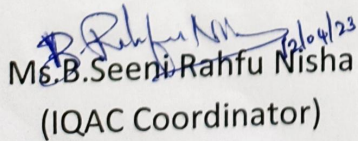 B. Rahfu Nisha
12/04/23
Ms.B.Seeni Rahfu Nisha
(IQAC Coordinator)